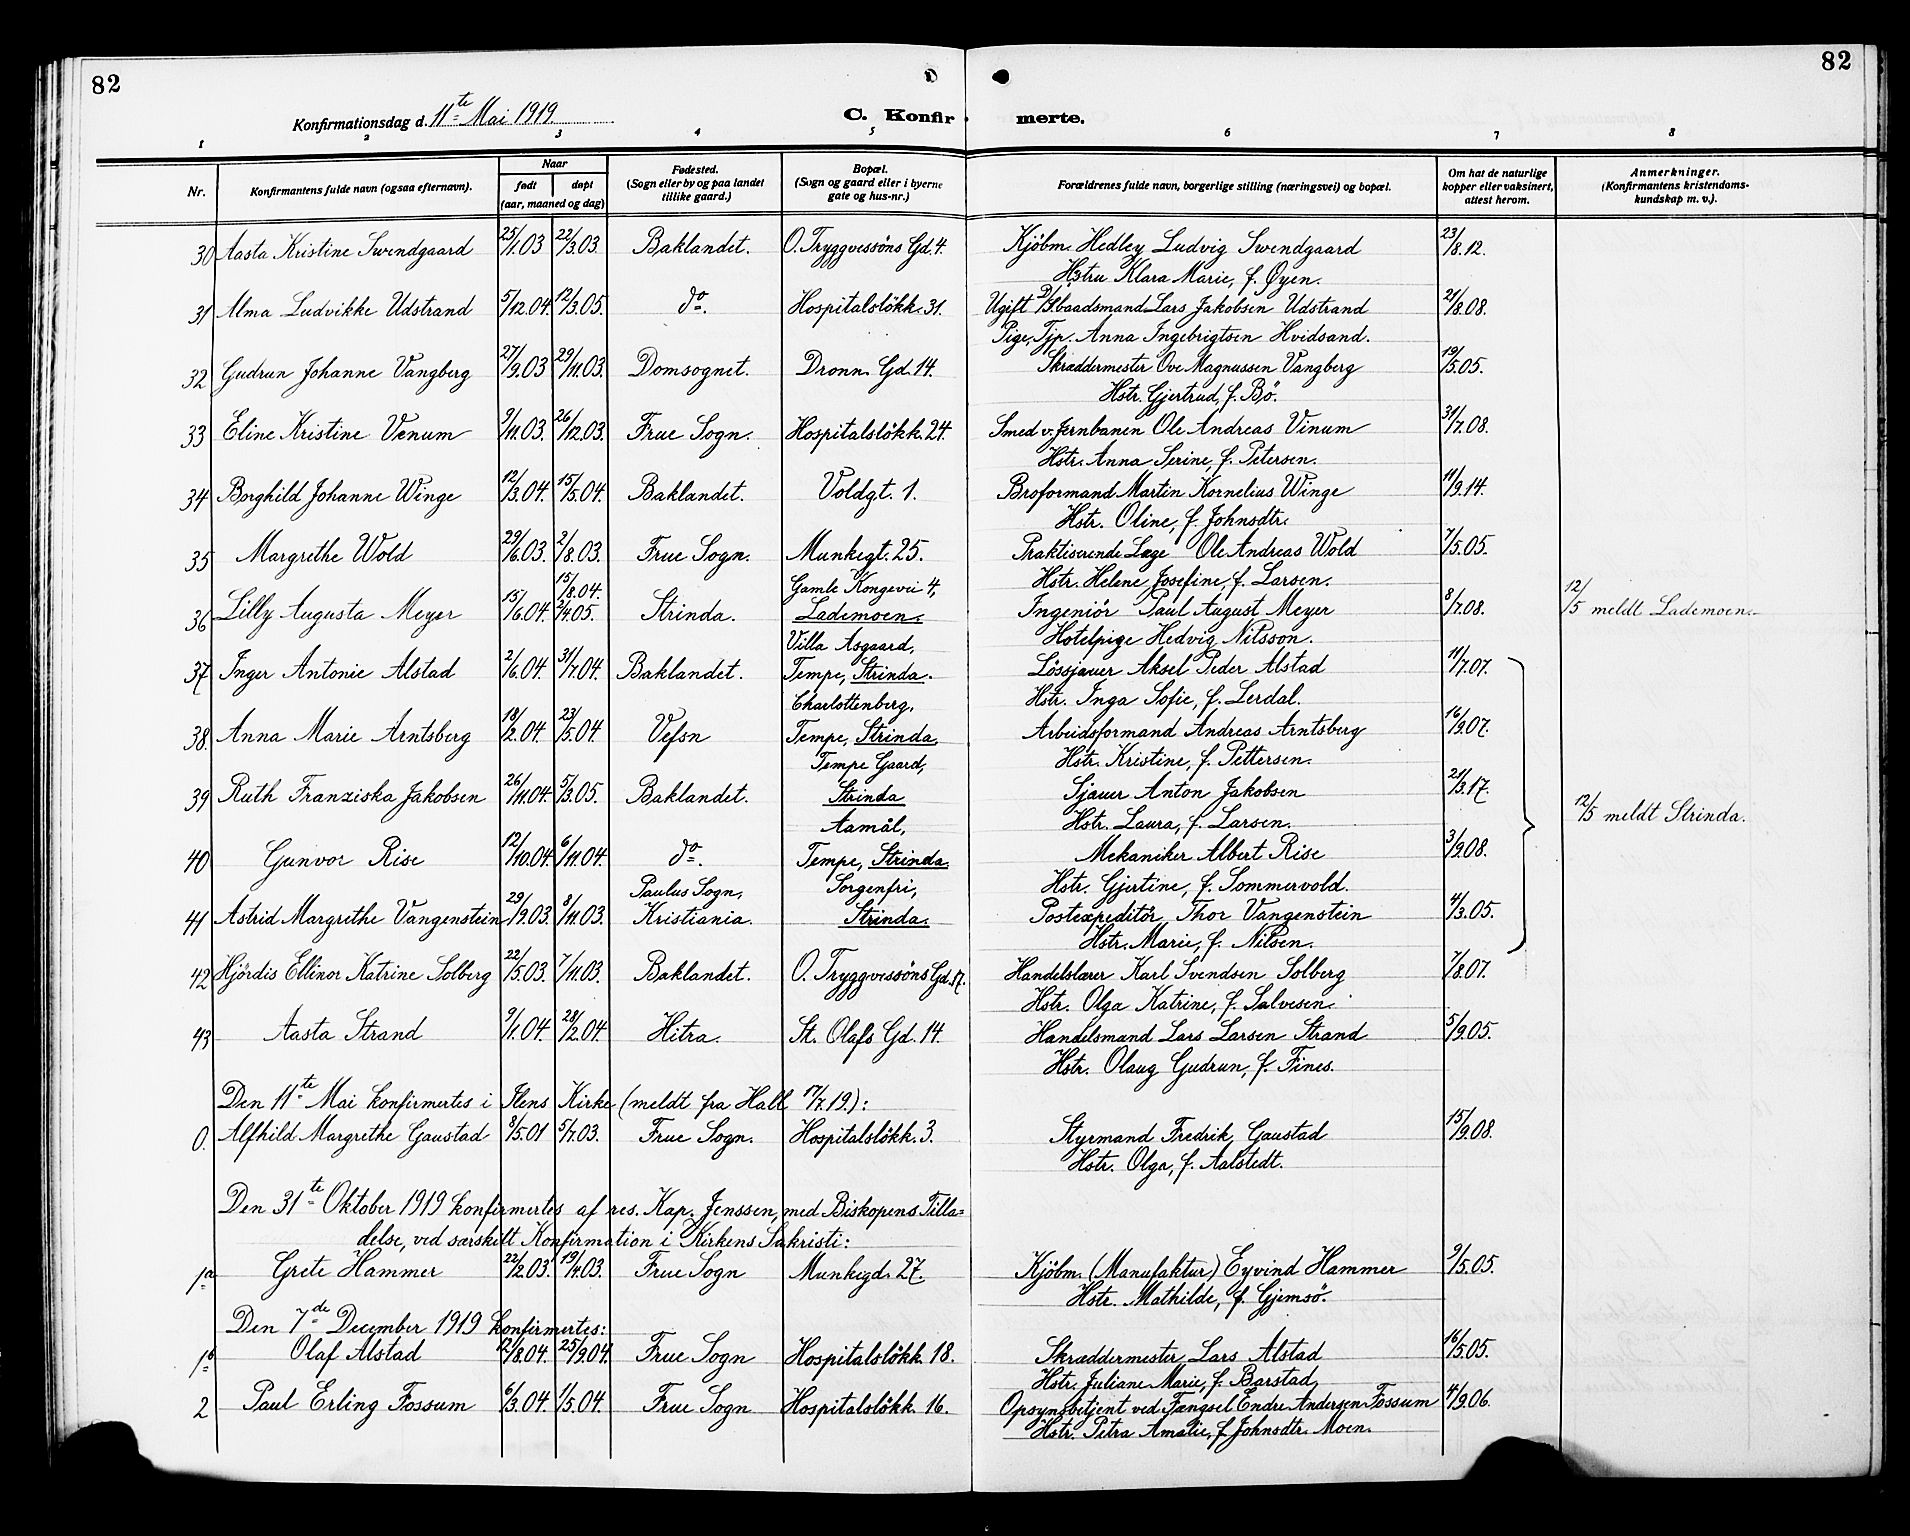 82
82
Konfirmationsdag d. 11te Mai 1919.
C. Konfir- merte.
1 2 3 4 5 6 7 8
Nr. Konfirmantens fulde navn (ogsaa efternavn). Naar født døpt (aar, maaned og dag) Fødested. (Sogn eller by og paa landet tillike gaard.) Bopæl. (Sogn og gaard eller i byerne gate og hus-nr.) Forældrenes fulde navn, borgerlige stilling (næringsvei) og bopæl. Om har de naturlige kopper eller vaksinert, attest herom. Anmerkninger. (Konfirmantens kristendoms-kundskap m. v.).
30 Aasta Kristine Swendgaard 25/1.03 22/3.03. Baklandet. O. Tryggvessöns Gd. 4. Kjöbm. Hedley Ludvig Swendgaard 23/8.12.
Hstru Klara Marie, f. Øyen.
31 Alma Ludvikke Udstrand 5/12.04. 12/3.05. do. Hospitalslökk. 31. Ugift baadsmand Lars Jakobsen Udstrand 21/8.08.
Pige, Tjp. Anna Ingebrigtsen Hvidsand.
32 Gudrun Johanne Vangberg 27/9.03 29/11.03. Domsognet. Dronn. Gd. 14. Skræddermester Ove Magnussen Vangberg 19/5.05.
Hstr. Gjertrud, f. Bö.
33 Eline Kristine Venum 9/11.03. 26/12.03. Frue Sogn. Hospitalslökk. 24. Smed v. Jernbanen Ole Andreas Vinum 31/7.08.
Hstr. Anna Serine, f. Petersen.
34 Borghild Johanne Winge 12/3.04. 15/5.04. Baklandet. Voldgt. 1. Broformand Martin Kornelius Winge 11/9.14.
Hstr. Oline, f. Johnsdtr.
35 Margrethe Wold 29/6.03. 2/8.03. Frue Sogn. Munkegt. 25. Praktiserende Læge Ole Andreas Wold 7/5.05.
15/8.04. Gamle Kongevei 4, Hstr. Helene Josefine, f. Larsen.
36 Lilly Augusta Meyer 15/6.04. 2/4.05. Strinda. Lademoen. Ingeniör Paul August Meyer 8/7.08. 12/5 meldt Lademoen.
Villa Asgaard, Hotelpige Hedvig Nilsson.
37 Inger Antonie Alstad 2/6.04. 31/7.04. Baklandet. Tempe, Strinda. Lössjauer Aksel Peder Alstad 11/7.07.
Charlottenberg, Hstr. Inga Sofie, f. Lerdal.
38. Anna Marie Arntsberg 18/2.04. 23/5.04 Vefsn Tempe, Strinda. Arbeidsformand Andreas Arntsberg 16/9.07.
Tempe Gaard, Hstr. Kristine, f. Pettersen.
39 Ruth Franziska Jakobsen 26/11.04. 5/3.05. Baklandet. Strinda Sjauer Anton Jakobsen 21/3.17. 12/5 meldt Strinda.
Aamål, Hstr. Laura, f. Larsen.
40 Gunvor Rise 12/10.04. 6/11.04. do. Tempe, Strinda. Mekaniker Albert Rise 3/9.08.
Paulus Sogn, Sorgenfri, Hstr. Gjertine, f. Sommervold.
41 Astrid Margrethe Vangenstein 29/9.03. 8/11.03. Kristiania. Strinda. Postexpeditör Thor Vangenstein 4/3.05.
Hstr. Marie, f. Nilsen.
42 Hjördis Ellinor Katrine Solberg 22/5.03. 7/11.03. Baklandet. O. Tryggvessöns Gd. 17. Handelslærer Karl Svendsen Solberg 7/8.07.
Hstr. Olga Katrine, f. Salvesen.
43 Aasta Strand 9/1.04. 28/2.04. Hitra. St. Olafs Gd. 14. Handelsmand Lars Larsen Strand 5/9.05.
Hstr. Olaug Gudrun, f. Fines.
Den 11te Mai konfirmertes i Ilens Kirke (meldt fra Hall 17/7.19.):
0. Alfhild Margrethe Gaustad 8/5.01 5/7.03. Frue Sogn. Hospitalslökk. 3. Styrmand Fredrik Gaustad 15/9.08.
Hstr. Olga, f. Aalstedt.
Den 31te Oktober 1919 konfirmertes af res. Kap. Jenssen, med Biskopens Tilla-
delse, ved særskilt Konfirmation i Kirkens Sakristi:
1a Grete Hammer 22/2.03. 19/4.03. Frue Sogn Munkegd. 27. Kjöbm. (Manufaktur) Eyvind Hammer 9/5.05.
Hstr. Mathilde, f. Gjemsö.
Den 7de December 1919 konfirmertes:
1b Olaf Alstad 12/8.04. 25/9.04. Frue Sogn Hospitalslökk. 18. Skræddermester Lars Alstad 16/5.05.
Hstr. Juliane Marie, f. Barstad,
2 Paul Erling Fossum 6/3.04. 1/5.04. Frue Sogn Hospitalslökk. 16. Opsynsbetjent ved Fængsel Endre Andersen Fossum 4/9.06.
Hstr. Petra Amalie, f. Johnsdtr. Moen.